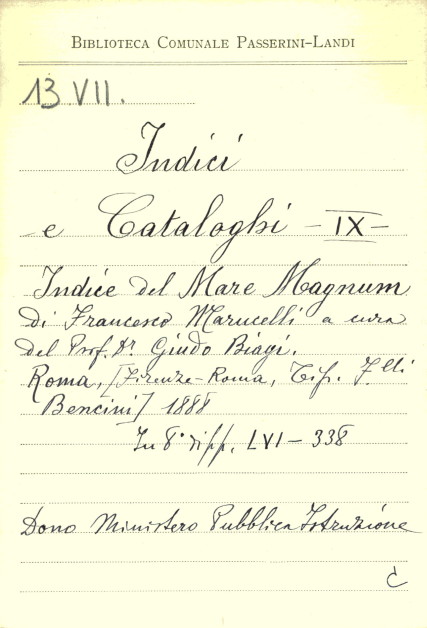 BIBLIOTECA COMUNALE PASSERINI-LANDI
13.VII.
Indici
e Cataloghi - IX -
Indice del Mare Magnum
di Francesco Marucelli a cura
del Prof. Dr Giudo Biagi.
Roma, [Firenze-Roma, Tip. F.lli
Bencini] 1888
In 8° di pp. LVI - 338
Dono Ministero Pubblica Istruzione
C